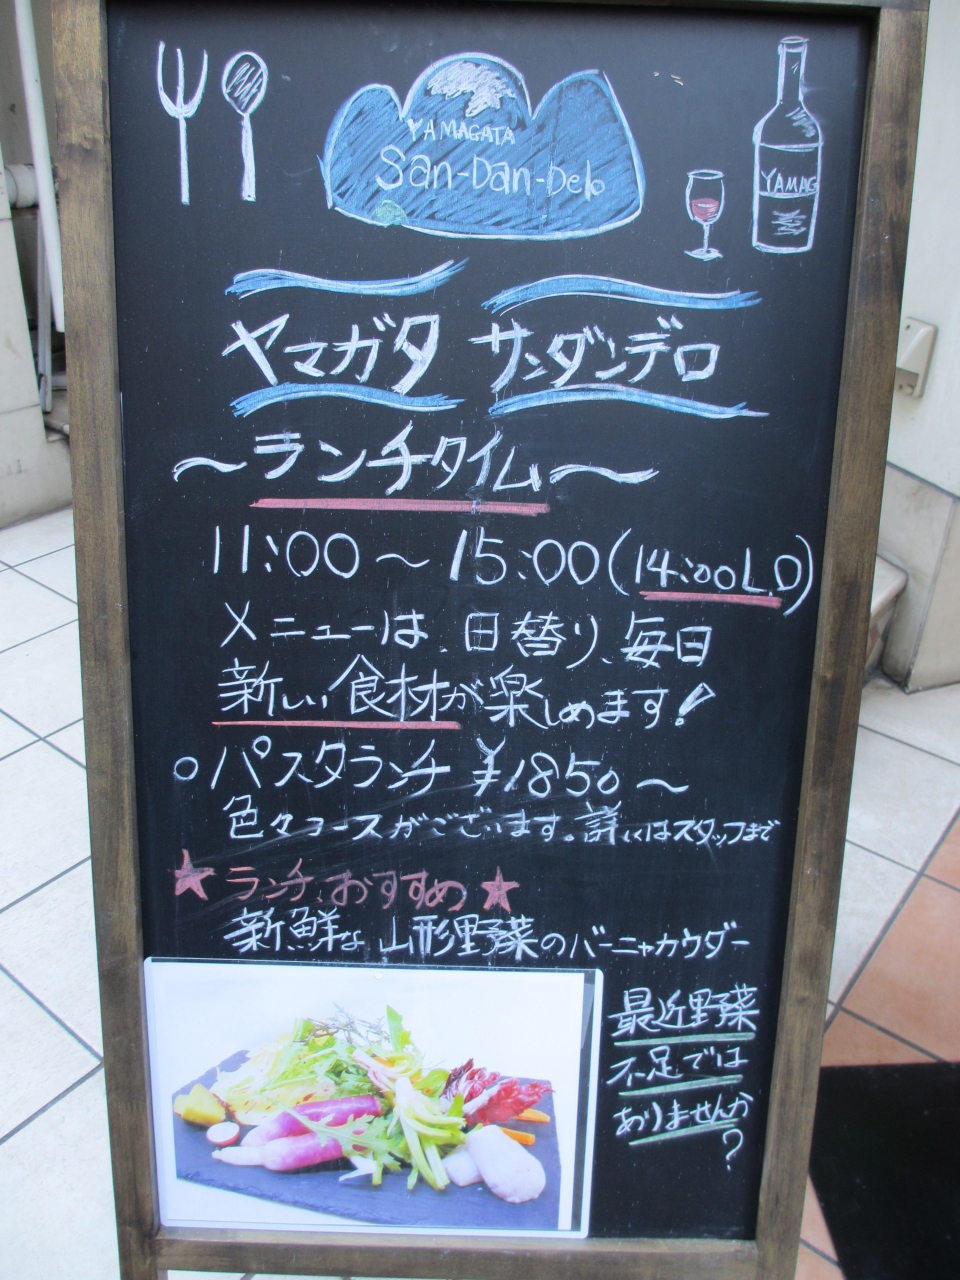 YAMAGATA
San-Dan-Delo
YAMAG
ヤマガタ サンダンデロ
〜ランチタイム〜
11:00〜15:00(14:00L.O)
メニューは、日替り、毎日
新しい食材が楽しめます!
○パスタランチ ¥1850〜
色々コースがございます。詳しくはスタッフまで
★ランチおすすめ★
新鮮な山形野菜のバーニャカウダー
最近野菜
不足では
ありませんか
?